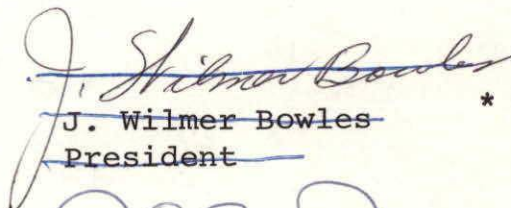 J. Wilmer Bowles
J. Wilmer Bowles *
President